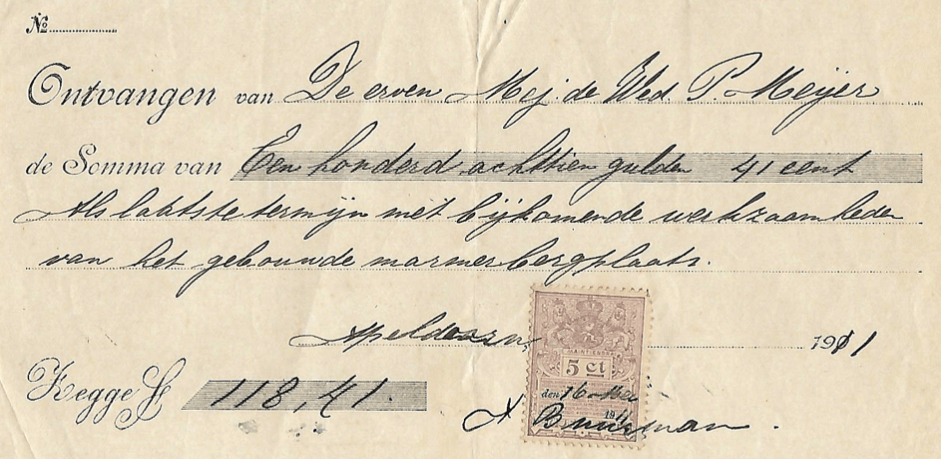 No
Ontvangen van De erven Mej. de Wed. P. Meijer
de Somma van Een honderd achttien gulden 41 cent
Als laatste termijn met bijkomende werkzaamheden
van het gebouwde marmerbergplaats.
Apeldoorn, 1911
JE MAINTIENDRAI
5 ct
Zegge f 118,41.
den 16 Mei
1911
A Buurman.